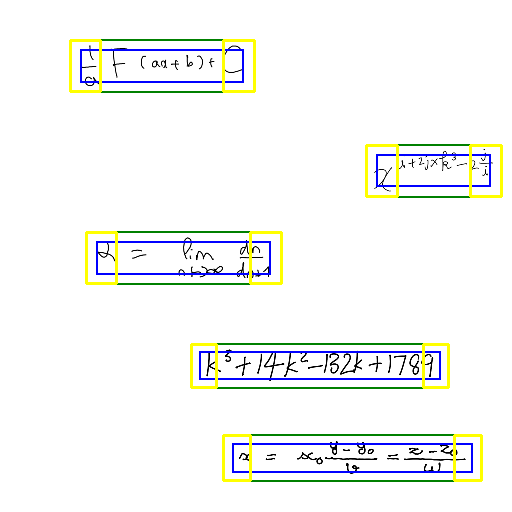 \frac{1}{a} F (ax + b) + C
x^{i + 2j \times k^3 - 2\frac{j}{i}}
\alpha = \lim_{n \to \infty} \frac{d_n}{d_{n+1}}
k^3 + 14k^2 - 132k + 1789
x = x_0 \frac{y - y_0}{v} = \frac{z - z_0}{w}